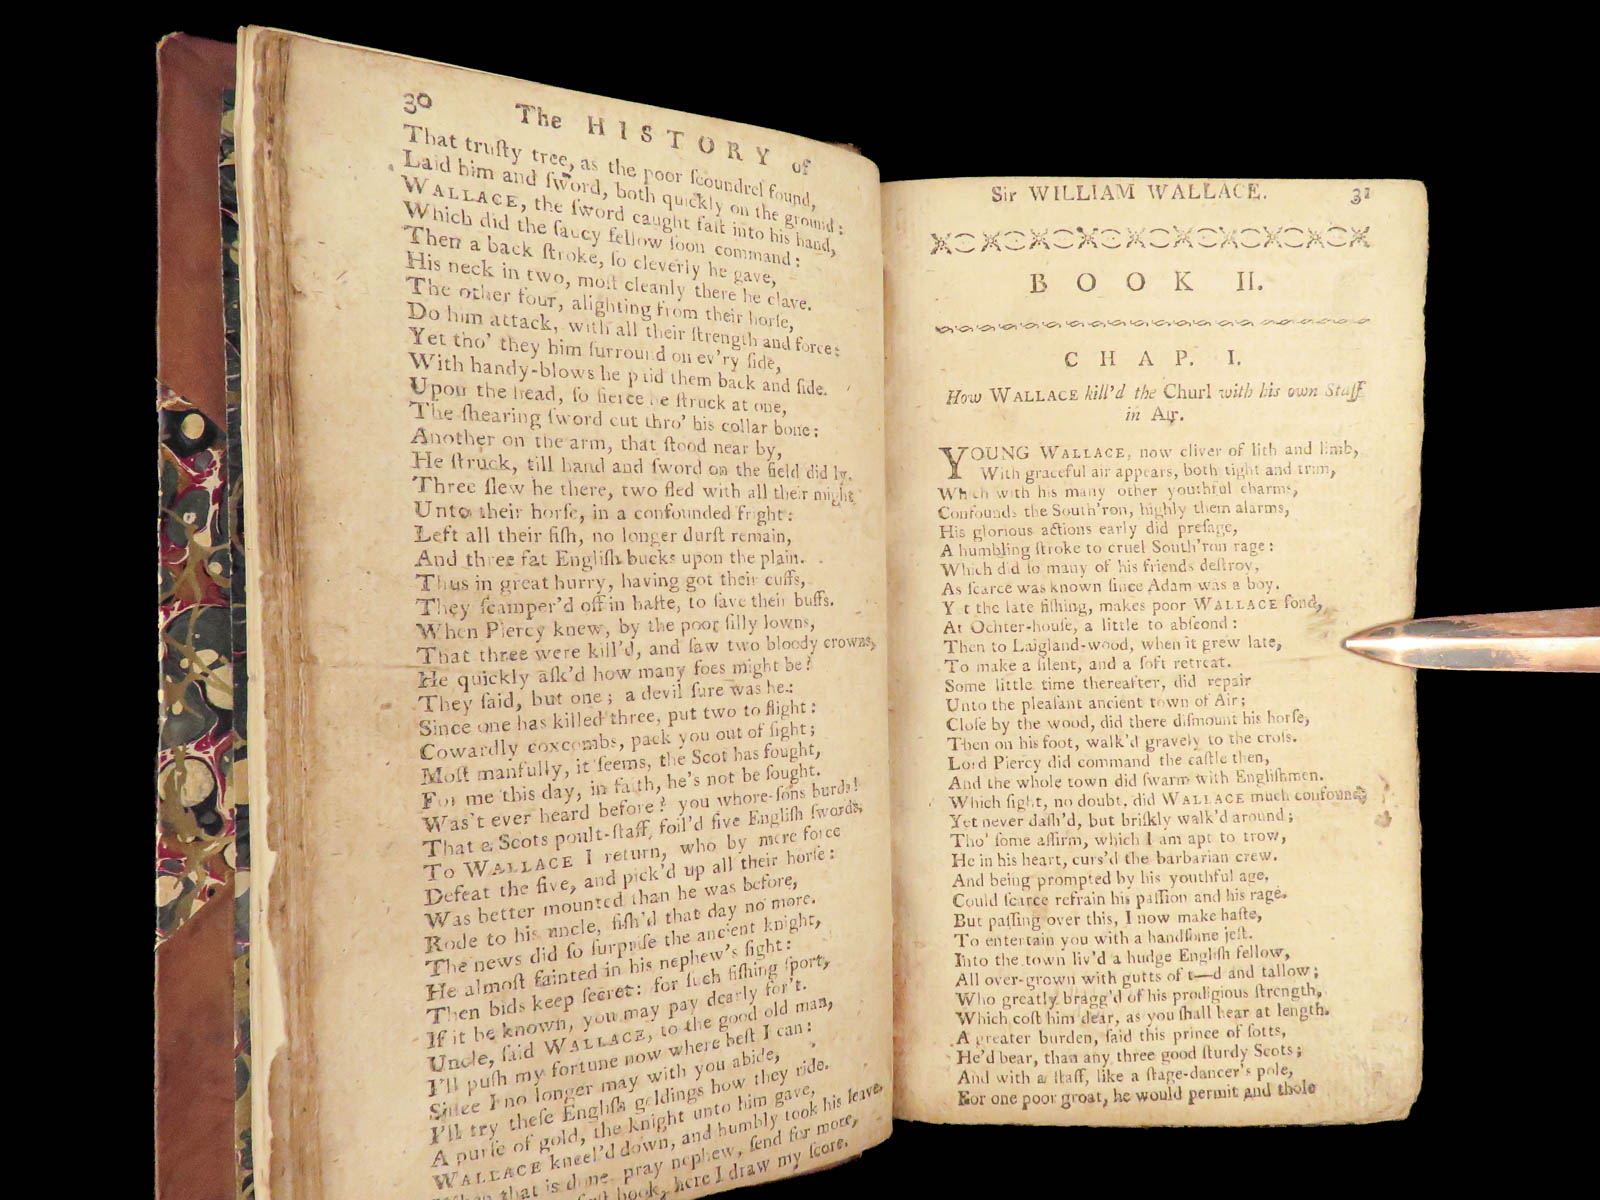 30 The HISTORY of
That truſty tree, as the poor ſcoundrel found,
Laid him and ſword, both quickly on the ground:
WALLACE, the ſword caught faſt into his hand,
Which did the ſaucy fellow ſoon command:
Then a back ſtroke, ſo cleverly he gave,
His neck in two, moſt cleanly there he clave.
The other four, alighting from their horſe,
Do him attack, with all their ſtrength and force:
Yet tho' they him ſurround on ev'ry ſide,
With handy-blows he paid them back and ſide.
Upon the head, ſo fierce he ſtruck at one,
The ſhearing ſword cut thro' his collar bone;
Another on the arm, that ſtood near by,
He ſtruck, till hand and ſword on the field did ly.
Three ſlew he there, two fled with all their might,
Unto their horſe, in a confounded fright:
Left all their fiſh, no longer durſt remain,
And three fat Engliſh bucks upon the plain.
Thus in great hurry, having got their cuffs,
They ſcamper'd off in haſte, to ſave their buffs.
When Piercy knew, by the poor ſilly lowns,
That three were kill'd, and ſaw two bloody crowns,
He quickly aſk'd how many foes might be?
They ſaid, but one; a devil ſure was he:
Since one has killed three, put two to flight:
Cowardly coxcombs, pack you out of ſight;
Moſt manfully, it ſeems, the Scot has fought,
For me this day, in faith, he's not be ſought.
Was't ever heard before? you whore-ſons burds!
That a Scots poult-ſtaff, foil'd five Engliſh ſwords,
To WALLACE I return, who by mere force
Defeat the five, and pick'd up all their horſe:
Was better mounted than he was before,
Rode to his uncle, fiſh'd that day no more.
The news did ſo ſurpriſe the ancient knight,
He almoſt fainted in his nephew's ſight:
Then bids keep ſecret: for ſuch fiſhing ſport,
If it be known, you may pay dearly for't.
Uncle, ſaid WALLACE, to the good old man,
I'll puſh my fortune now where beſt I can:
Since I no longer may with you abide,
I'll try theſe Engliſh geldings how they ride.
A purſe of gold, the knight unto him gave,
WALLACE kneel'd down, and humbly took his leave.
When that is done, pray nephew, ſend for more,
book, here I draw my ſcore.
Sir WILLIAM WALLACE. 31
BOOK II.
CHAP. I.
How WALLACE kill'd the Churl with his own Staff
in Air.
YOUNG WALLACE, now cliver of lith and limb,
With graceful air appears, both tight and trim,
Which with his many other youthful charms,
Confounds the South'ron, highly them alarms,
His glorious actions early did preſage,
A humbling ſtroke to cruel South'ron rage:
Which did ſo many of his friends deſtroy,
As ſcarce was known ſince Adam was a boy.
Yet the late fiſhing, makes poor WALLACE fond,
At Ochter-houſe, a little to abſcond:
Then to Laigland-wood, when it grew late,
To make a ſilent, and a ſoft retreat.
Some little time thereafter, did repair
Unto the pleaſant ancient town of Air;
Cloſe by the wood, did there diſmount his horſe,
Then on his foot, walk'd gravely to the croſs.
Lord Piercy did command the caſtle then,
And the whole town did ſwarm with Engliſhmen.
Which ſight, no doubt, did WALLACE much confound,
Yet never daſh'd, but briſkly walk'd around;
Tho' ſome affirm, which I am apt to trow,
He in his heart, curs'd the barbarian crew.
And being prompted by his youthful age,
Could ſcarce refrain his paſſion and his rage.
But paſſing over this, I now make haſte,
To entertain you with a handſome jeſt.
Into the town liv'd a hudge Engliſh fellow,
All over-grown with gutts of t—d and tallow;
Who greatly bragg'd of his prodigious ſtrength,
Which coſt him dear, as you ſhall hear at length.
A greater burden, ſaid this prince of ſotts,
He'd bear, than any three good ſturdy Scots;
And with a ſtaff, like a ſtage-dancer's pole,
For one poor groat, he would permit and thole